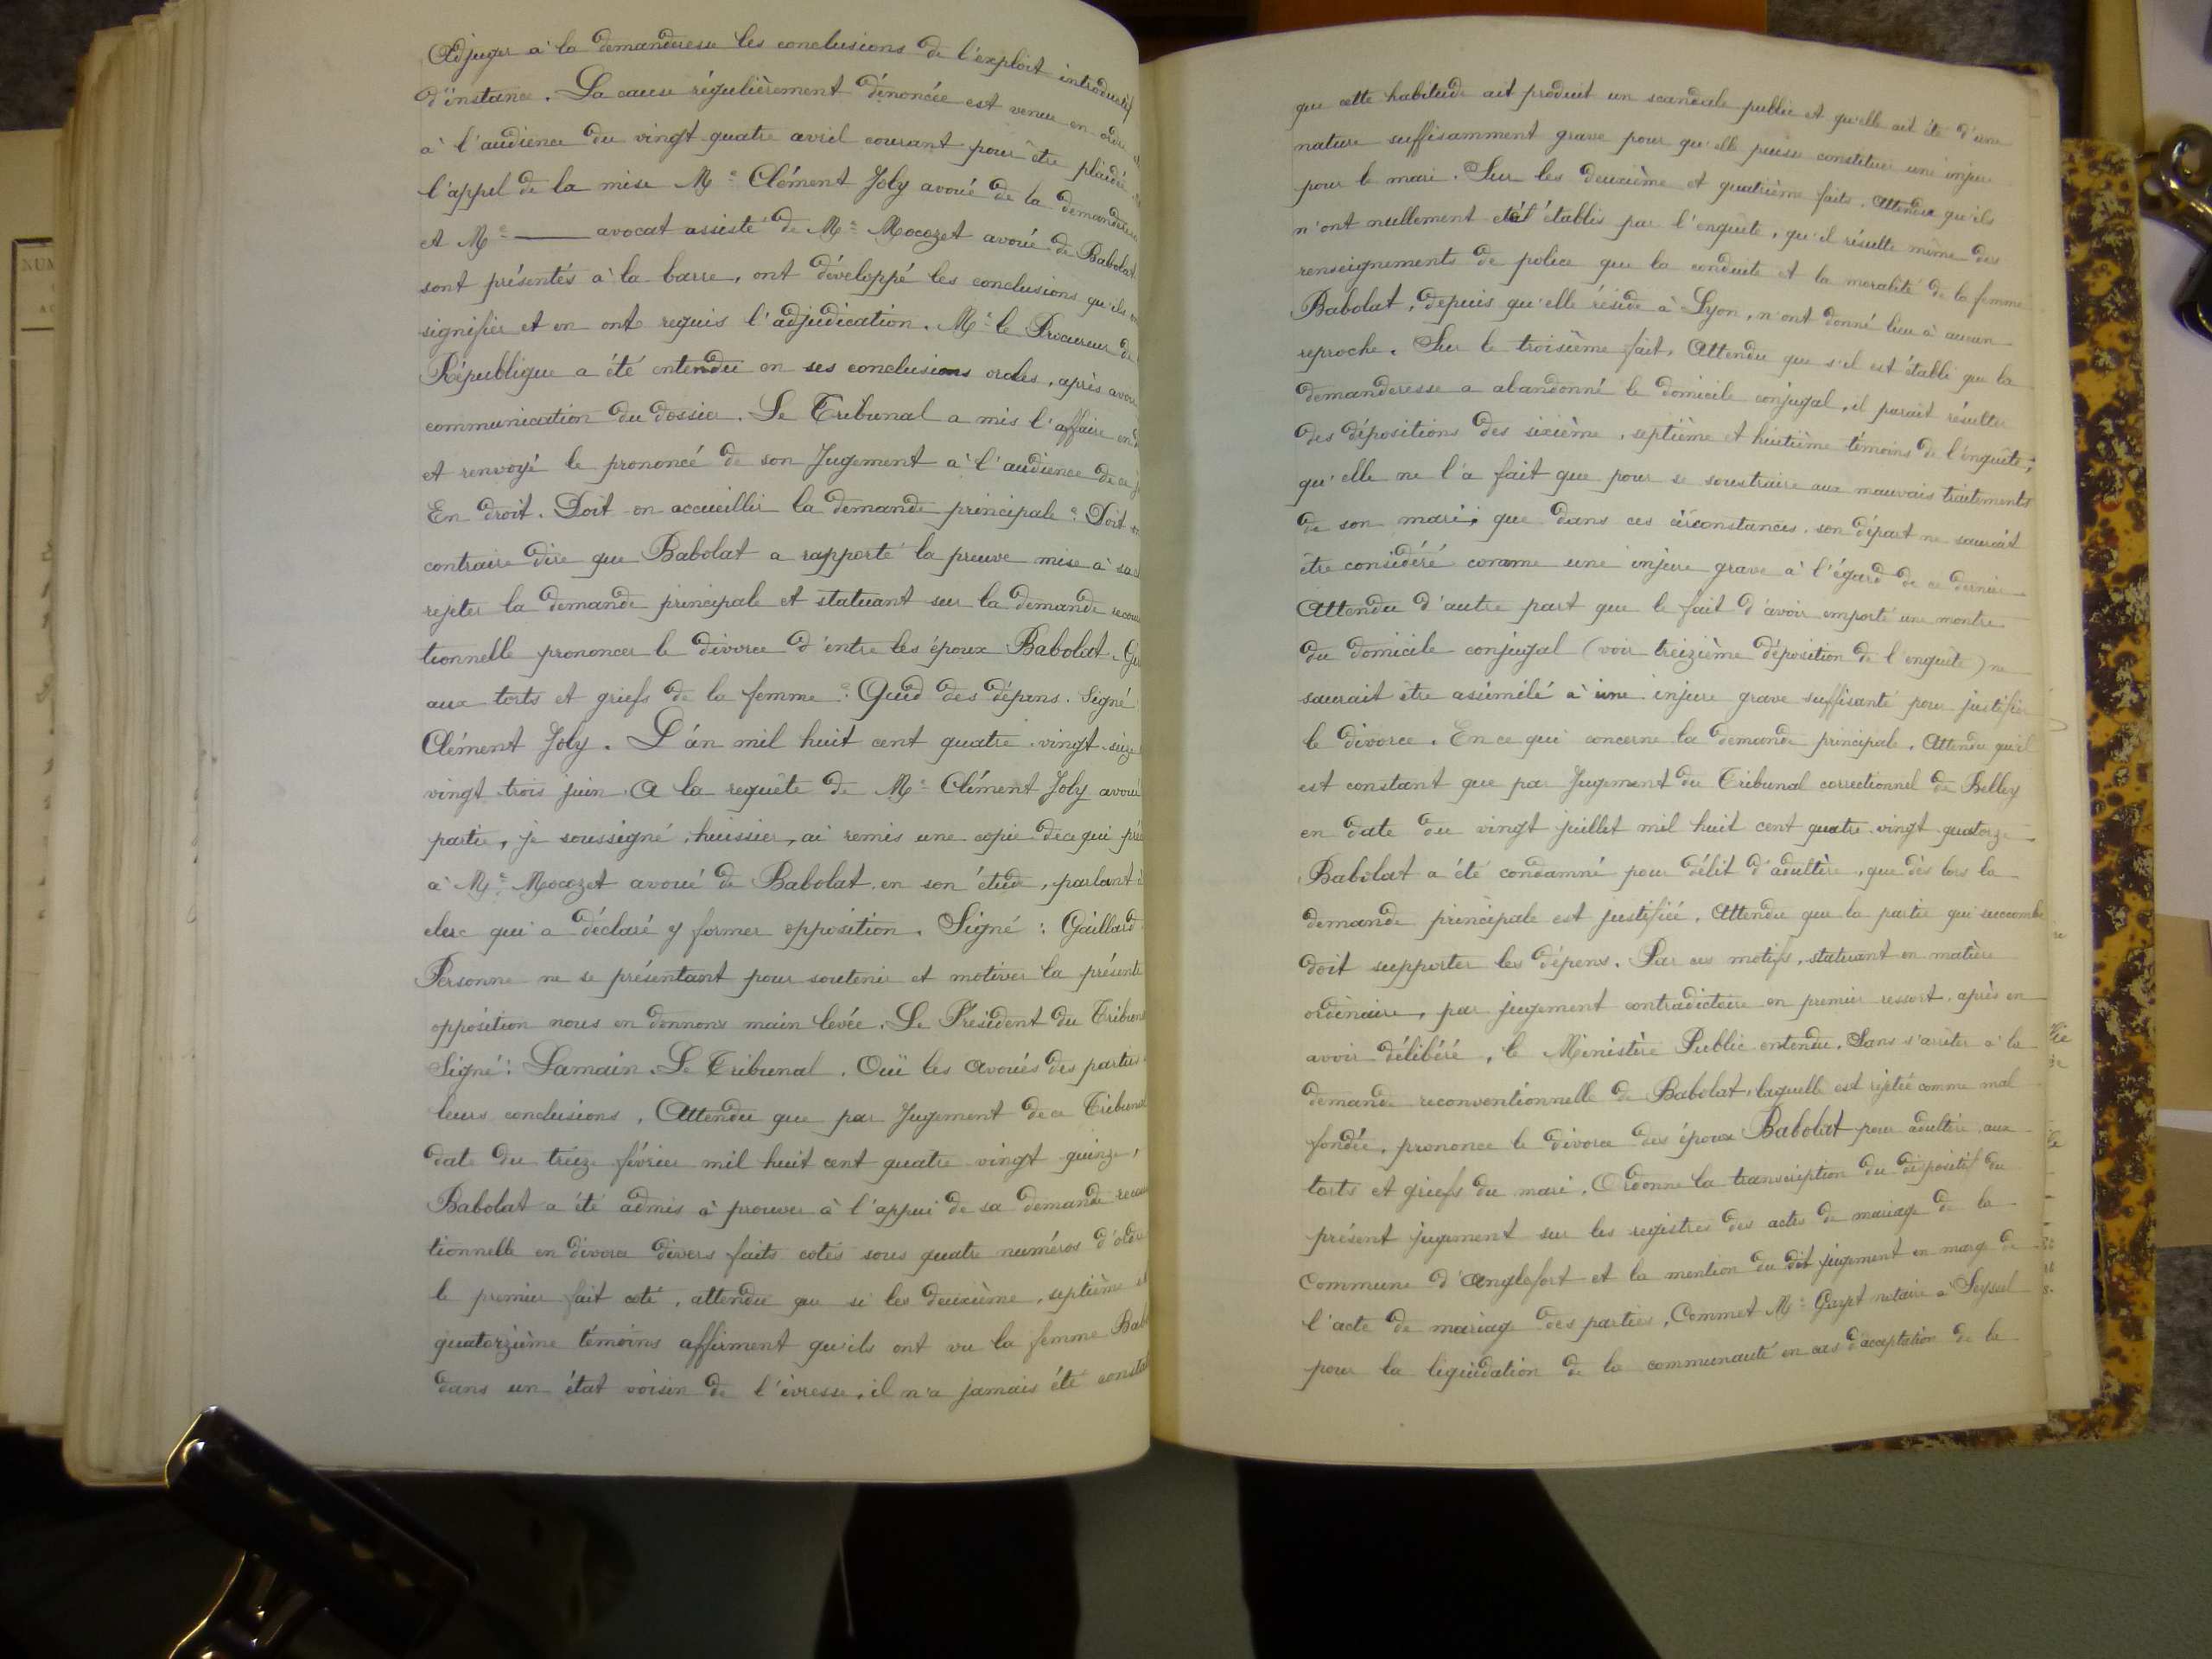 NUM
Adjuger à la demanderesse les conclusions de l'exploit introductif
d'instance. La cause régulièrement dénoncée est venue en ordre
à l'audience du vingt quatre avril courant pour être plaidée
l'appel de la mise Me Clément Joly avoué de la demanderesse
et Me ——— avocat assisté de Me Mocozet avoué de Babolat
sont présentés à la barre, ont développé les conclusions qu'ils
signifier et en ont requis l'adjudication. Mr le Procureur de
République a été entendu en ses conclusions orales, après avoir
communication du dossier. Le Tribunal a mis l'affaire en
et renvoyé le prononcé de son Jugement à l'audience de ce
En droit. Doit on accueillir la demande principale ? Doit
contraire dire que Babolat a rapporté la preuve mise à sa
rejeter la demande principale et statuant sur la demande
tionnelle prononcer le divorce d'entre les époux Babolat.
aux torts et griefs de la femme ? Quid des dépens. Signé
Clément Joly. L'an mil huit cent quatre-vingt-seize
vingt-trois juin. A la requête de Me Clément Joly avoué
partie, je soussigné, huissier, ai remis une copie de ce qui
à Me Mocozet avoué de Babolat en son étude, parlant à
clerc qui a déclaré y former opposition. Signé : Gaillard
Personne ne se présentant pour soutenir et motiver la présente
opposition nous en donnons main levée. Le Président du
Signé : Lamain. Le Tribunal. Ouï les avoués des parties
leurs conclusions, Attendu que par Jugement de ce
date du treize février mil huit cent quatre vingt quinze,
Babolat a été admis à prouver à l'appui de sa demande
tionnelle en divorce divers faits cotés sous quatre numéros d'ordre
le premier fait coté, attendu que si les deuxième, septième et
quatorzième témoins affirment qu'ils ont vu la femme
dans un état voisin de l'ivresse, il n'a jamais été
que cette habitude ait produit un scandale public et qu'elle ait été d'une
nature suffisamment grave pour qu'elle puisse constituer une injure
pour le mari. Sur les deuxième et quatrième faits. Attendu qu'ils
n'ont nullement été établis par l'enquête, qu'il résulte même des
renseignements de police que la conduite et la moralité de la femme
Babolat, depuis qu'elle réside à Lyon, n'ont donné lieu à aucun
reproche. Sur le troisième fait. Attendu que s'il est établi que la
demanderesse a abandonné le domicile conjugal, il parait résulter
des dépositions des sixième, septième et huitième témoins de l'enquête;
qu'elle ne l'a fait que pour se soustraire aux mauvais traitements
de son mari; que dans ces circonstances, son départ ne saurait
être considéré comme une injure grave à l'égard de ce dernier
Attendu d'autre part que le fait d'avoir emporté une montre
du domicile conjugal (voir treizième déposition de l'enquête) ne
saurait être assimilé à une injure grave suffisante pour justifier
le divorce. En ce qui concerne la demande principale. Attendu qu'il
est constant que par Jugement du Tribunal correctionnel de Belley
en date du vingt juillet mil huit cent quatre-vingt quatorze
Babolat a été condamné pour délit d'adultère, que dès lors la
demande principale est justifiée. Attendu que la partie qui succombe
doit supporter les dépens. Par ces motifs, statuant en matière
ordinaire, par jugement contradictoire en premier ressort, après en
avoir délibéré, le Ministère Public entendu. Sans s'arrêter à la
demande reconventionnelle de Babolat, laquelle est rejetée comme mal
fondée, prononce le divorce des époux Babolat pour adultère aux
torts et griefs du mari. Ordonne la transcription du dispositif du
présent jugement sur les registres des actes de mariage de la
Commune d'Anglefort et la mention du dit jugement en marge de
l'acte de mariage des parties, Commet Me notaire à Seyssel
pour la liquidation de la communauté en cas d'acceptation de la